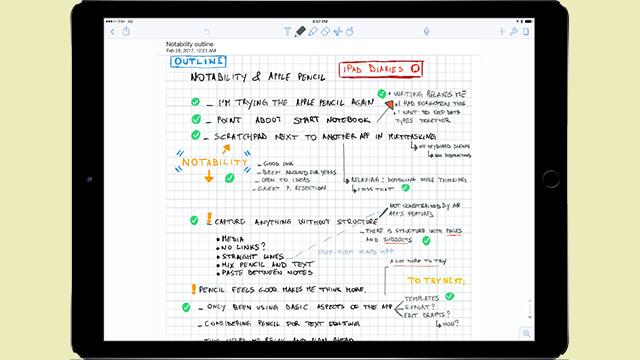 AT&T 4G
3:57 PM
Notability outline
Feb 28, 2017, 12:21 AM
OUTLINE
NOTABILITY & APPLE PENCIL
IPAD DIARIES
- I'M TRYING THE APPLE PENCIL AGAIN
- POINT ABOUT START NOTEBOOK
- SCRATCHPAD NEXT TO ANOTHER APP IN MULTITASKING
• WRITING RELAXES ME
• I HAD FORGOTTEN THIS
• I WANT TO KEEP DATA
TYPES TOGETHER
NO KEYBOARD SHOWN
NO DISTRACTIONS
"NOTABILITY"
- GOOD INK
- BEEN AROUND FOR YEARS
- OPEN TO IDEAS
- GREAT P. REJECTION
RELAXING: DOODLING WHILE THINKING
LINDS THAT
NOT CONSTRAINED BY AN
APP'S FEATURES
! CAPTURE ANYTHING WITHOUT STRUCTURE
- THERE IS STRUCTURE WITH PAGES
AND SUBJECTS
• MEDIA
• NO LINKS?
• STRAIGHT LINES
• MIX PENCIL AND TEXT
• PASTE BETWEEN NOTES
FREE-FORM MIND MAP
A LOT MORE TO TRY
! PENCIL FEELS GOOD. MAKES ME THINK MORE.
TO TRY NEXT:
- ONLY BEEN USING BASIC ASPECTS OF THE APP
TEMPLATES
EXPORT?
EDIT DRAFTS?
HOW?
- CONSIDERING PENCIL FOR TEXT EDITING
- THIS HELPS ME RELAX AND PLAN AHEAD